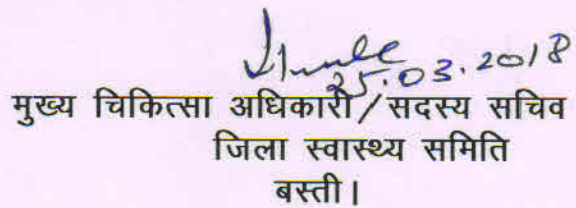 25.03.2018
मुख्य चिकित्सा अधिकारी/सदस्य सचिव
जिला स्वास्थ्य समिति
बस्ती।